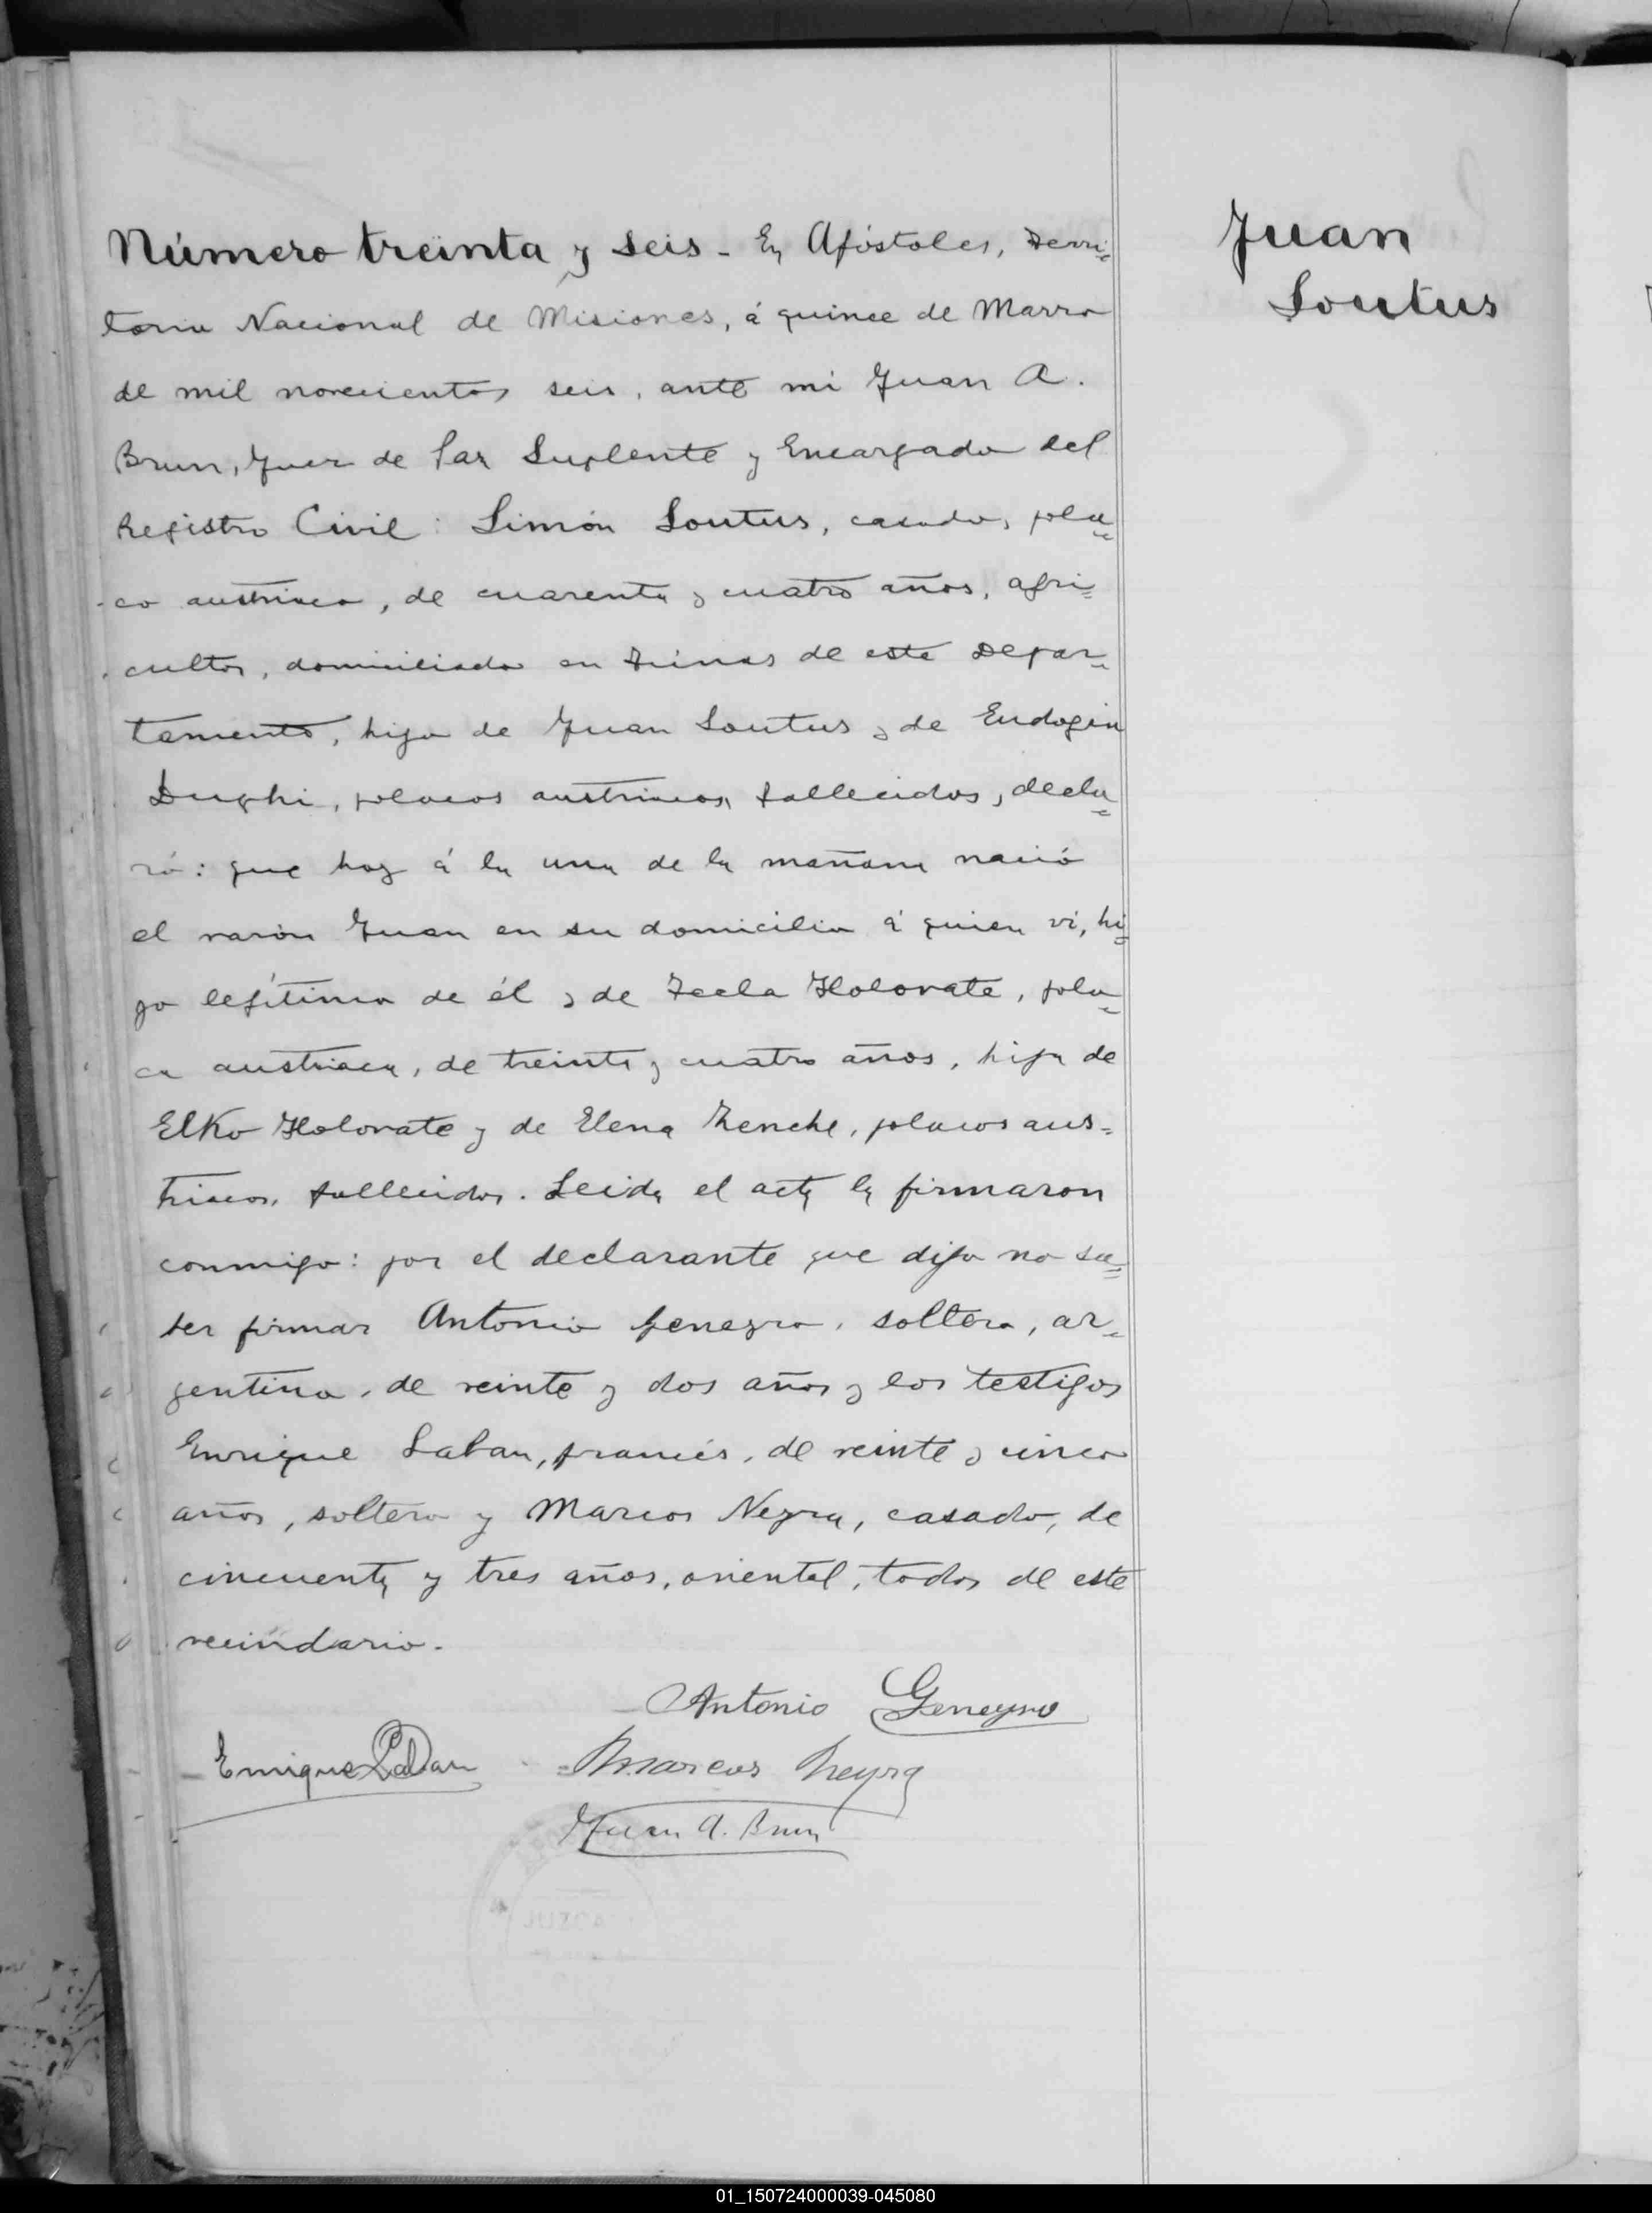 Número treinta y seis - En Apóstoles, Terri=
torio Nacional de Misiones, á quince de Marzo
de mil novecientos seis, ante mi Juan A.
Brun, Juez de Paz Suplente y Encargado del
Registro Civil: Simón Soutus, casado, pola=
co austriaco, de cuarenta y cuatro años, agri=
cultor, domiciliado en Tunas de este Depar=
tamento, hijo de Juan Soutus y de Eudogia
polacos austriacos, fallecidos, decla=
ró: que hoy á la una de la mañana nació
el varón Juan en su domicilio á quien vi, hi=
jo legítimo de él y de Tecla Holovate, pola=
ca austriaca, de treinta y cuatro años, hija de
Elko Holovate y de Elena Zenche, polacos aus=
triacos, fallecidos. Leida el acta la firmaron
conmigo: por el declarante que dijo no sa=
ber firmar Antonio Geneyro, soltero, ar=
gentino, de veinte y dos años y los testigos
Enrique Laban, francés, de veinte y cinco
años, soltero y Marcos Neyra, casado, de
cincuenta y tres años, oriental, todos de este
vecindario.
Antonio Geneyro
Enrique Laban
Marcos Neyra
Juan A. Brun
Juan
Soutus
01_150724000039-045080